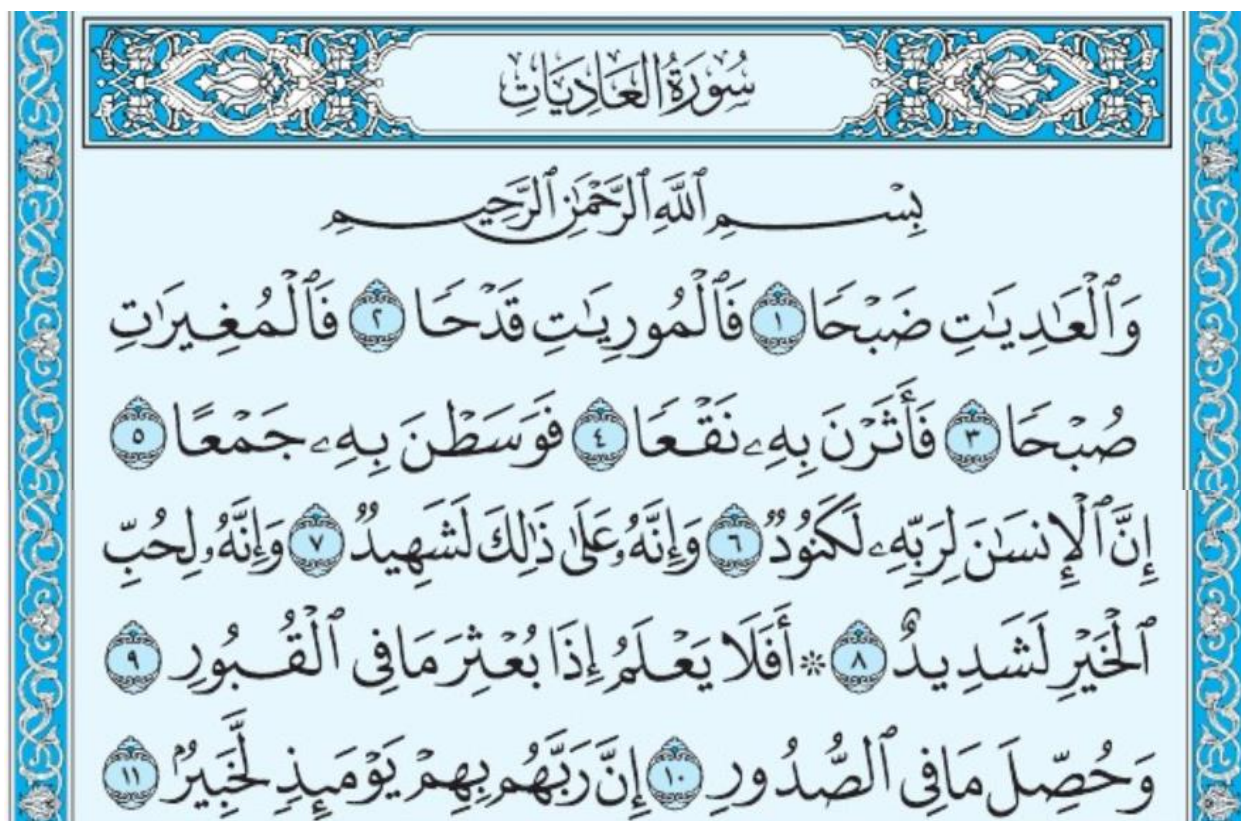 سُورَةُ العَادِيَات
بِسْمِ ٱللَّهِ ٱلرَّحْمَٰنِ ٱلرَّحِيمِ
وَٱلْعَٰدِيَٰتِ ضَبْحًا ١ فَٱلْمُورِيَٰتِ قَدْحًا ٢ فَٱلْمُغِيرَٰتِ
صُبْحًا ٣ فَأَثَرْنَ بِهِۦ نَقْعًا ٤ فَوَسَطْنَ بِهِۦ جَمْعًا ٥
إِنَّ ٱلْإِنسَٰنَ لِرَبِّهِۦ لَكَنُودٌ ٦ وَإِنَّهُۥ عَلَىٰ ذَٰلِكَ لَشَهِيدٌ ٧ وَإِنَّهُۥ لِحُبِّ
ٱلْخَيْرِ لَشَدِيدٌ ٨ ۞ أَفَلَا يَعْلَمُ إِذَا بُعْثِرَ مَا فِى ٱلْقُبُورِ ٩
وَحُصِّلَ مَا فِى ٱلصُّدُورِ ١٠ إِنَّ رَبَّهُم بِهِمْ يَوْمَئِذٍ لَّخَبِيرٌۢ ١١